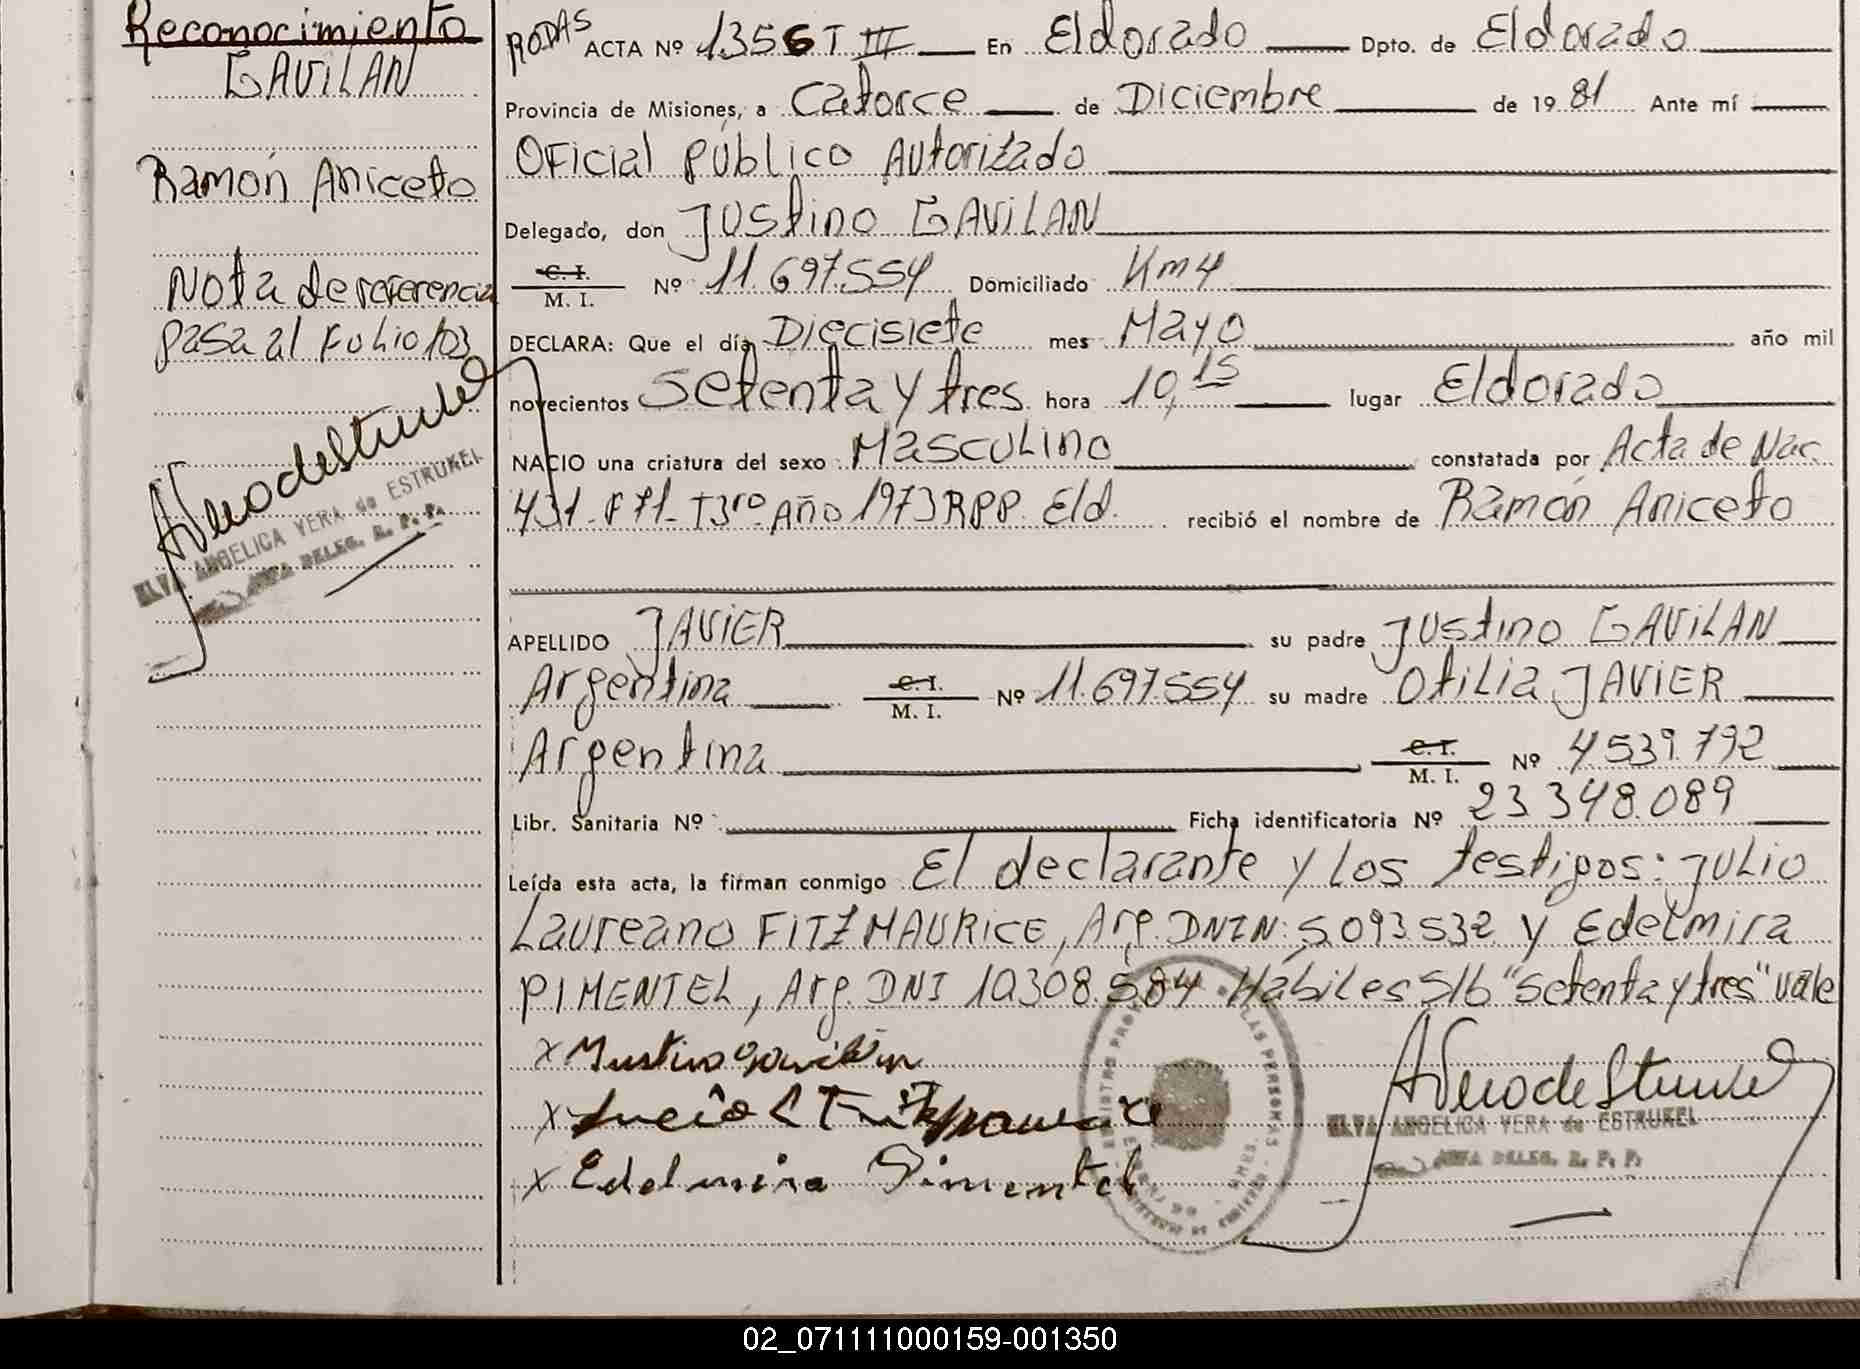 Reconocimiento
GAVILAN
Ramón Aniceto
Nota de referencia
pasa al Folio 103
ELVA ANGELICA VERA de ESTRUKEL
JEFA DELEG. R. P. P.
RODAS ACTA Nº 1356 T III En Eldorado Dpto. de Eldorado
Provincia de Misiones, a Catorce de Diciembre de 19 81 Ante mí
Oficial Público Autorizado
Delegado, don Justino GAVILAN
C. I. M. I. Nº 11.697.554 Domiciliado Km 4
DECLARA: Que el día Diecisiete mes Mayo año mil
novecientos Setenta y tres hora 10,15 lugar Eldorado
NACIO una criatura del sexo Masculino constatada por Acta de Nac.
431-F71-T3ro Año 1973 RPP. Eld. recibió el nombre de Ramón Aniceto
APELLIDO JAVIER su padre Justino GAVILAN
Argentina C. I. M. I. Nº 11.697.554 su madre Otilia JAVIER
Argentina C. I. M. I. Nº 4.539.792
Libr. Sanitaria Nº Ficha identificatoria Nº 23.348.089
Leída esta acta, la firman conmigo El declarante y los testigos: Julio
Laureano FITZMAURICE, Arg. DNI N: 5.093.532 y Edelmira
PIMENTEL, Arg. DNI 10.308.584 Hábiles S/b "Setenta y tres" vale
x Justino gavilan
x
x Edelmira Pimentel
ELVA ANGELICA VERA de ESTRUKEL
JEFA DELEG. R. P. P.
02_071111000159-001350